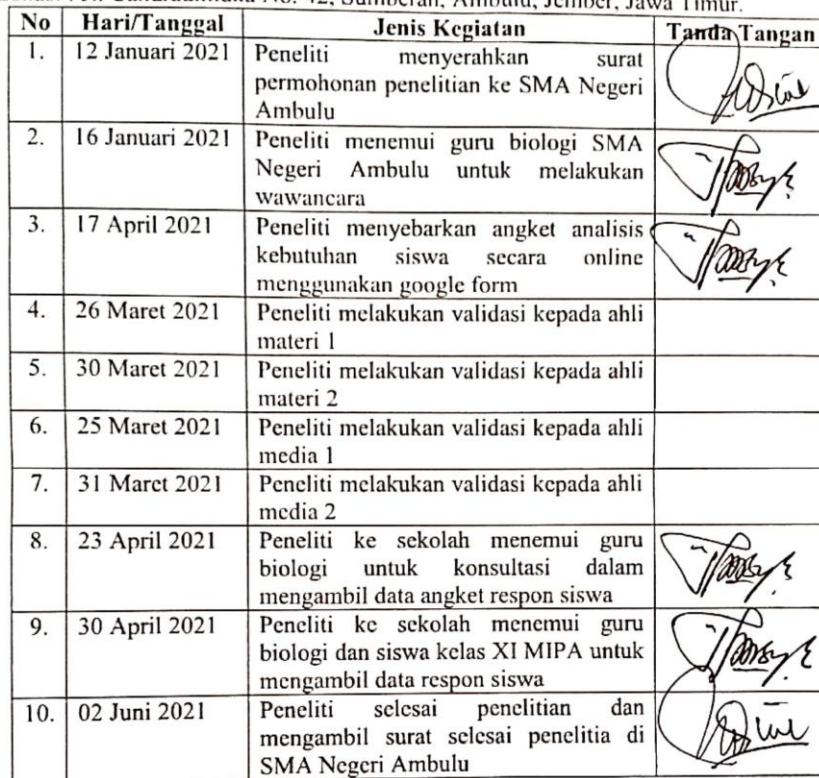 No. 42, Sumberan, Ambulu, Jember, Jawa Timur.
No Hari/Tanggal Jenis Kegiatan Tanda Tangan
1. 12 Januari 2021 Peneliti menyerahkan surat
permohonan penelitian ke SMA Negeri
Ambulu
2. 16 Januari 2021 Peneliti menemui guru biologi SMA
Negeri Ambulu untuk melakukan
wawancara
3. 17 April 2021 Peneliti menyebarkan angket analisis
kebutuhan siswa secara online
menggunakan google form
4. 26 Maret 2021 Peneliti melakukan validasi kepada ahli
materi 1
5. 30 Maret 2021 Peneliti melakukan validasi kepada ahli
materi 2
6. 25 Maret 2021 Peneliti melakukan validasi kepada ahli
media 1
7. 31 Maret 2021 Peneliti melakukan validasi kepada ahli
media 2
8. 23 April 2021 Peneliti ke sekolah menemui guru
biologi untuk konsultasi dalam
mengambil data angket respon siswa
9. 30 April 2021 Peneliti ke sekolah menemui guru
biologi dan siswa kelas XI MIPA untuk
mengambil data respon siswa
10. 02 Juni 2021 Peneliti selesai penelitian dan
mengambil surat selesai penelitia di
SMA Negeri Ambulu